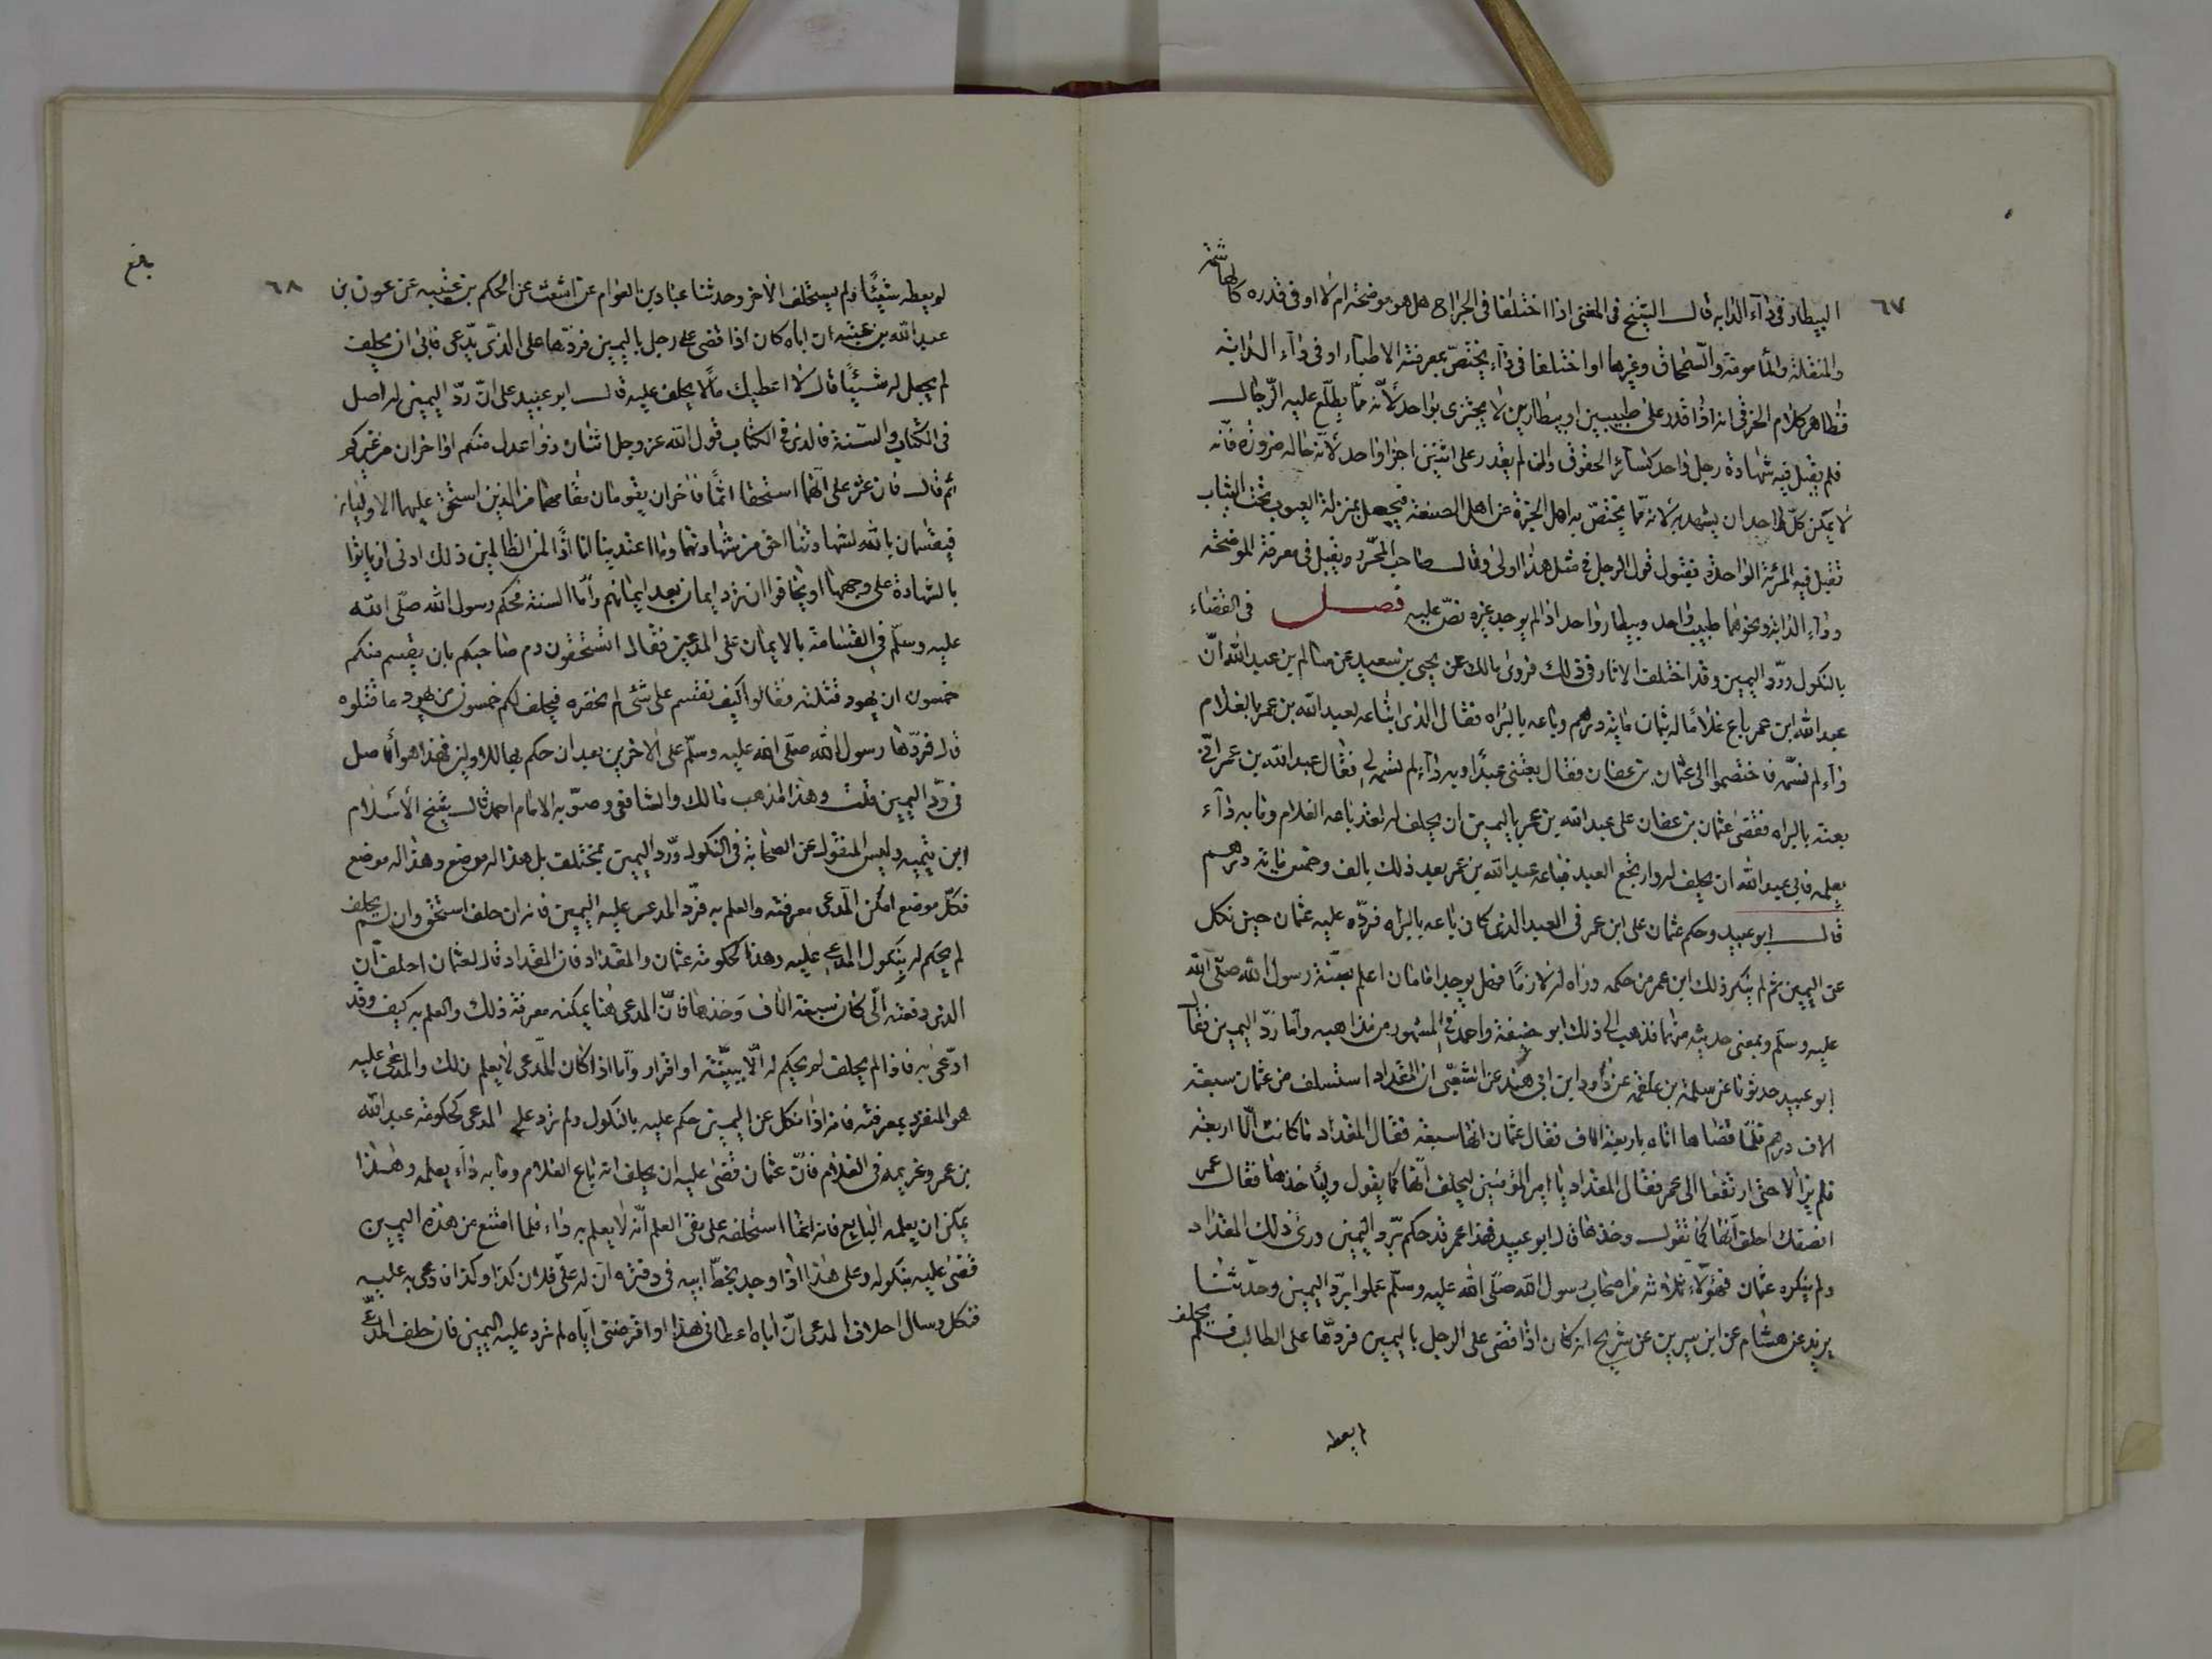 ٦٧
البيطار في داء الدابة قال الشيخ في المغني اذا اختلفا في الجراح هل هو موضحة ام لا او في قدره كالهاشمة
والمنقلة والمأمومة والسمحاق وغيرها او اختلفا في داء يختص بمعرفته الاطباء او في داء الدابة
فظاهر كلام الخرقي انه اذا قدر على طبيبين او بيطارين لا يجتزى بواحد لأنه مما يطلع عليه الرجال
فلم يقبل فيه شهادة رجل واحد كسائر الحقوق وان لم يقدر على اثنين اجزا واحد لأنه حالة ضرورة فانه
لا يمكن كل احد ان يشهد به لانه مما يختص به اهل الخبرة من اهل الصنعة فيجعل بمنزلة العيوب تحت الثياب
تقبل فيه المرئة الواحدة فقبول قول الرجل في مثل هذا اولى وقال صاحب المحرر ويقبل في معرفة الموضحة
وداء الدابة ونحوهما طبيب واحد وبيطار واحد اذا لم يوجد غيره نص عليه فصل في القضاء
بالنكول ورد اليمين وقد اختلف الاثار في ذلك فروى مالك عن يحيى بن سعيد عن سالم بن عبد الله ان
عبد الله ابن عمر باع غلاما له بثمان مائة درهم وباعه بالبراه فقال الذي ابتاعه لعبد الله بن عمر بالغلام
داء لم تسمه فاختصموا الى عثمان بن عفان فقال بعتني عبدا وبه داء لم تسمه لي فقال عبد الله بن عمر اني
بعته بالبراه فقضى عثمان بن عفان على عبد الله بن عمر باليمين ان يحلف له لقد باعه الغلام وما به داء
يعلمه فابى عبد الله ان يحلف له وارتجع العبد فباعه عبد الله بن عمر بعد ذلك بالف وخمس مائة درهم
قال ابو عبيد وحكم عثمان على ابن عمر في العبد الذي كان باعه بالبراه فرده عليه عثمان حين نكل
عن اليمين ثم لم ينكر ذلك ابن عمر من حكمه وراه له لازما فهل يوجد امامان اعلم بسنة رسول الله صلى الله
عليه وسلم وبمعنى حديثه منهما فذهب الى ذلك ابو حنيفة واحمد في المشهور من مذاهبه واما رد اليمين فقال
ابو عبيد حدثونا عن سلمة بن علقمة عن داود ابن ابي هند عن الشعبي ان المقداد استسلف من عثمان سبعة
الاف درهم فلما قضاها اتاه باربعة الاف فقال عثمان انها سبعة فقال المقداد ما كانت الا اربعة
فلم يزالا حتى ارتفعا الى عمر فقال المقداد يا امير المؤمنين ليحلف انها كما يقول وليأخذها فقال عمر
انصفك احلف انها كما تقول وخذها قال ابو عبيد فهذا عمر قد حكم برد اليمين ورأى ذلك المقداد
ولم ينكره عثمان فهؤلاء ثلاثة من اصحاب رسول الله صلى الله عليه وسلم عملوا برد اليمين وحدثنا
يزيد عن هشام عن ابن سيرين عن شريح انه كان اذا قضى على الرجل باليمين فردها على الطالب فلم يحلف
لم يعطه
٦٨
لم يعطه شيئا ولم يستحلف الاخر وحدثنا عباد بن العوام عن اشعث عن الحكم بن عتيبة عن عون بن
عبد الله بن عتبة ان اباه كان اذا قضى على رجل باليمين فردها على الذي يدعى فابى ان يحلف
لم يجعل له شيئا قال لا اعطيك مالا يحلف عليه قال ابو عبيد على ان رد اليمين له اصل
في الكتاب والسنة فالذي في الكتاب قول الله عز وجل اثنان ذوا عدل منكم او اخران من غيركم
ثم قال فان عثر على انهما استحقا اثما فاخران يقومان مقامهما من الذين استحق عليهما الاوليان
فيقسمان بالله لشهادتنا احق من شهادتهما وما اعتدينا انا اذا لمن الظالمين ذلك ادنى ان ياتوا
بالشهادة على وجهها او يخافوا ان ترد ايمان بعد ايمانهم واما السنة فحكم رسول الله صلى الله
عليه وسلم في القسامة بالايمان على المدعين فقال اتستحقون دم صاحبكم بان يقسم منكم
خمسون ان يهود قتلته فقالوا كيف نقسم على شئ لم نحضره فيحلف لكم خمسون من يهود ما قتلوه
قال فردها رسول الله صلى الله عليه وسلم على الاخرين بعد ان حكم بها للاولين فهذا هو الأصل
في رد اليمين قلت وهذا مذهب مالك والشافعي وصوبه الامام احمد قال شيخ الأسلام
ابن تيميه وليس المنقول عن الصحابة في النكول ورد اليمين بمختلف بل هذا له موضع وهذا له موضع
فكل موضع امكن المدعى معرفته والعلم به فرد المدعى عليه اليمين فانه ان حلف استحق وان لم يحلف
لم يحكم له بنكول المدعى عليه وهذا كحكومة عثمان والمقداد فان المقداد قال لعثمان احلف ان
الذي دفعته الي كان سبعة الاف وخذها فان المدعى هنا يمكنه معرفة ذلك والعلم به كيف وقد
ادعى به فاذا لم يحلف لم يحكم له الا ببينة او اقرار واما اذا كان المدعى لا يعلم ذلك والمدعى عليه
هو المنفرد بمعرفته فانه اذا نكل عن اليمين حكم عليه بالنكول ولم ترد على المدعى كحكومة عبد الله
بن عمر وغريمه في الغلام فان عثمان قضى عليه ان يحلف انه باع الغلام وما به داء يعلمه وهذا
يمكن ان يعلمه البايع فانه انما استحلفه على نفي العلم انه لا يعلم به داء فلما امتنع من هذه اليمين
قضى عليه بنكوله وعلى هذا اذا وجد بخط ابيه في دفتره ان له على فلان كذا وكذا فادعى به عليه
فنكل وسال احلاف المدعى ان اباه اعطاني هذا او اقرضني اياه لم ترد عليه اليمين فان حلف المدعي